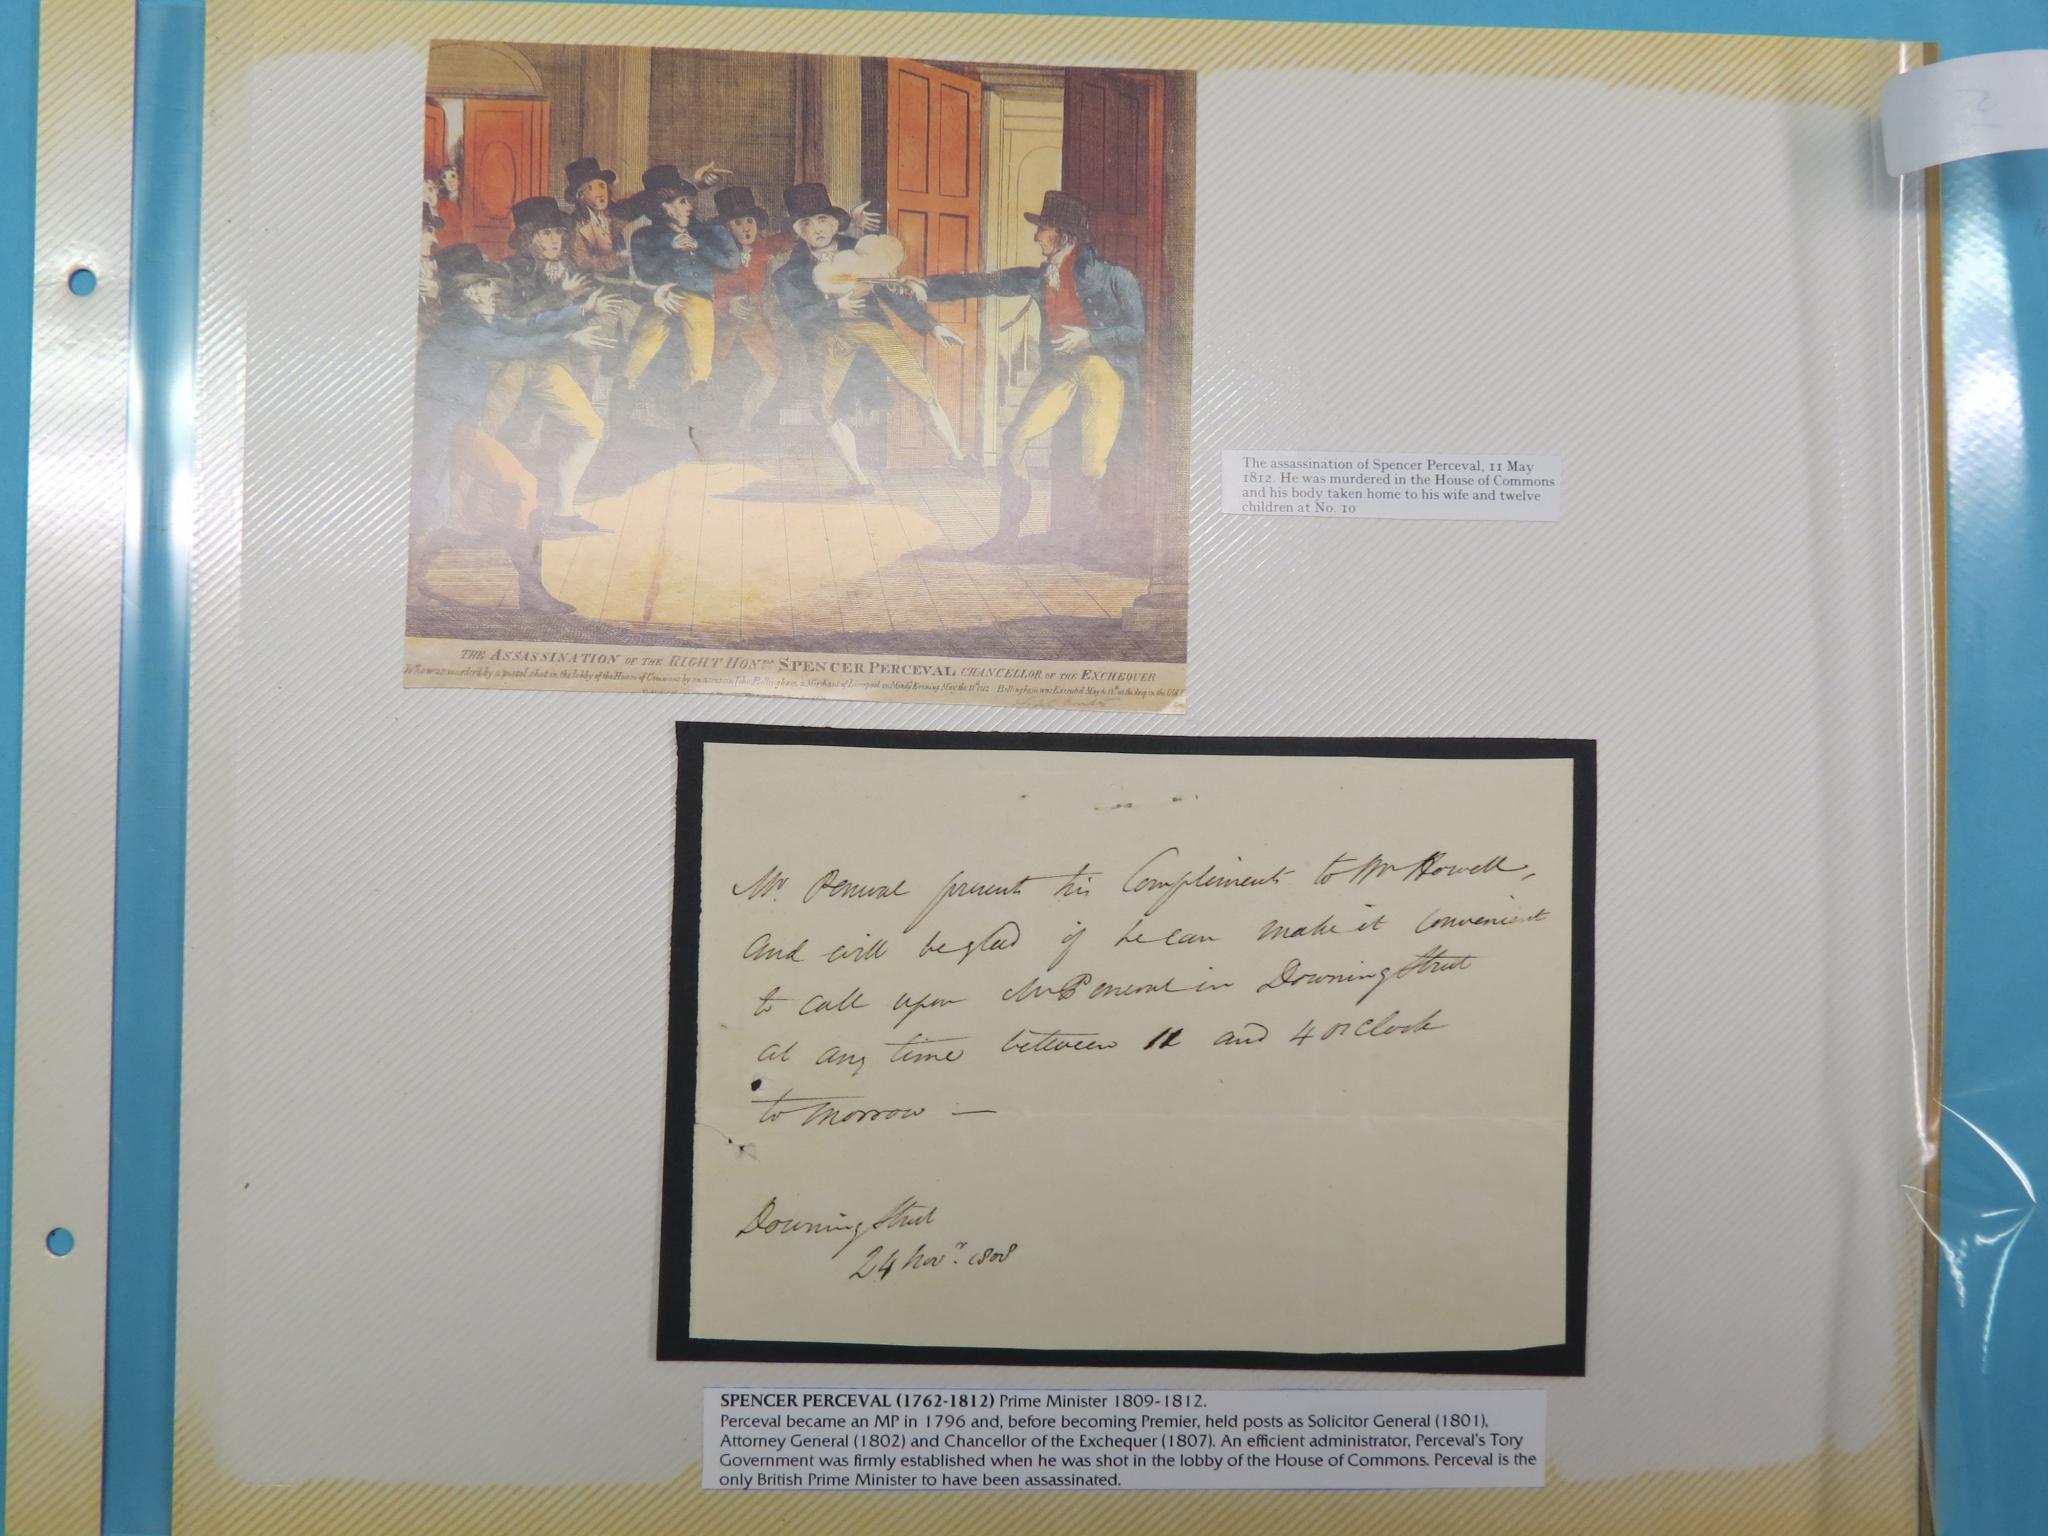 THE ASSASSINATION OF THE RIGHT HONBLE SPENCER PERCEVAL CHANCELLOR OF THE EXCHEQUER
Who was murder'd by a pistol shot in the lobby of the House of Commons by an assassin John Bellingham a Merchant of Liverpool on Monday Evening May the 11th 1812 Bellingham was Executed May the at the drop in the Old
The assassination of Spencer Perceval, 11 May
1812. He was murdered in the House of Commons
and his body taken home to his wife and twelve
children at No. 10
Mr. Perceval presents his Compliments to Mr Howell,
and will be glad if he can make it convenient
to call upon Mr Perceval in Downing Street
at any time between 12 and 4 o'Clock
to morrow —
Downing Street
24 Novr. 1808
SPENCER PERCEVAL (1762-1812) Prime Minister 1809-1812.
Perceval became an MP in 1796 and, before becoming Premier, held posts as Solicitor General (1801),
Attorney General (1802) and Chancellor of the Exchequer (1807). An efficient administrator, Perceval's Tory
Government was firmly established when he was shot in the lobby of the House of Commons. Perceval is the
only British Prime Minister to have been assassinated.